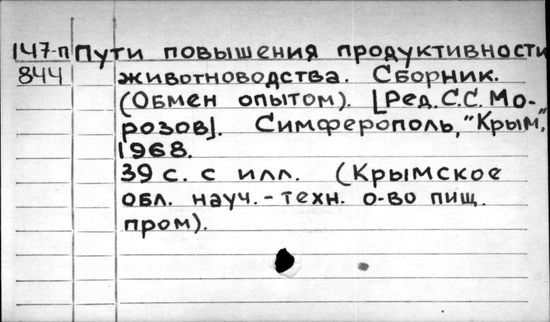 147-п Пути повышения продуктивности
844 животноводства. Сборник.
(Обмен опытом). [Ред. С.С. Мо-
розов]. Симферополь, "Крым",
1968.
39 с. с илл. (Крымское
обл. науч.-техн. о-во пищ.
пром).